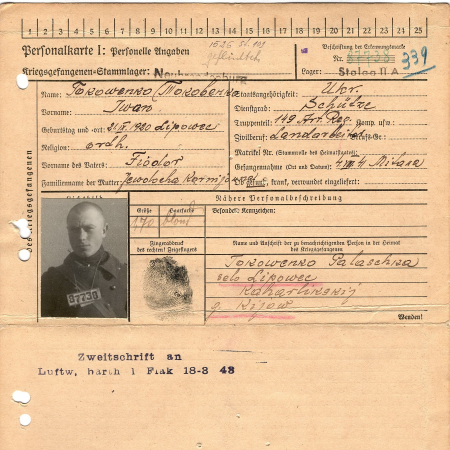 1 2 3 4 5 6 7 8 9 10 11 12 13 14 15 16 17 18 19 20 21 22 23 24 25
Personalkarte I: Personelle Angaben
Beschriftung der Erkennungsmarke
Nr. 87738 339
Kriegsgefangenen-Stammlager: Neubrandenburg
Lager: Stalag II A
Des Kriegsgefangenen
Name: Tokowenko
Staatsangehörigkeit: Ukr.
Vorname: Iwan
Dienstgrad: Schütze
Geburtstag und -ort: 1920 Lipowec
Truppenteil: 149 Art. Reg. Komp. usw.:
Religion: orth.
Zivilberuf: Berufs-Gr.:
Matrikel Nr. (Stammrolle des Heimatstaates):
Vorname des Vaters: Fiödor
Gefangennahme (Ort und Datum):
Familienname der Mutter:
Ob gesund, krank, verwundet eingeliefert:
Nähere Personalbeschreibung
Größe Haarfarbe
Besondere Kennzeichen:
1,70 blond
Fingerabdruck
des rechten! Zeigefingers
Name und Anschrift der zu benachrichtigenden Person in der Heimat
des Kriegsgefangenen
Tokowenko Palaschka
selo Lipowec
Kaharlikskij
g. Kijow
87738
Wenden!
Zweitschrift an
Luftw, barth 1 Flak 18-8 43